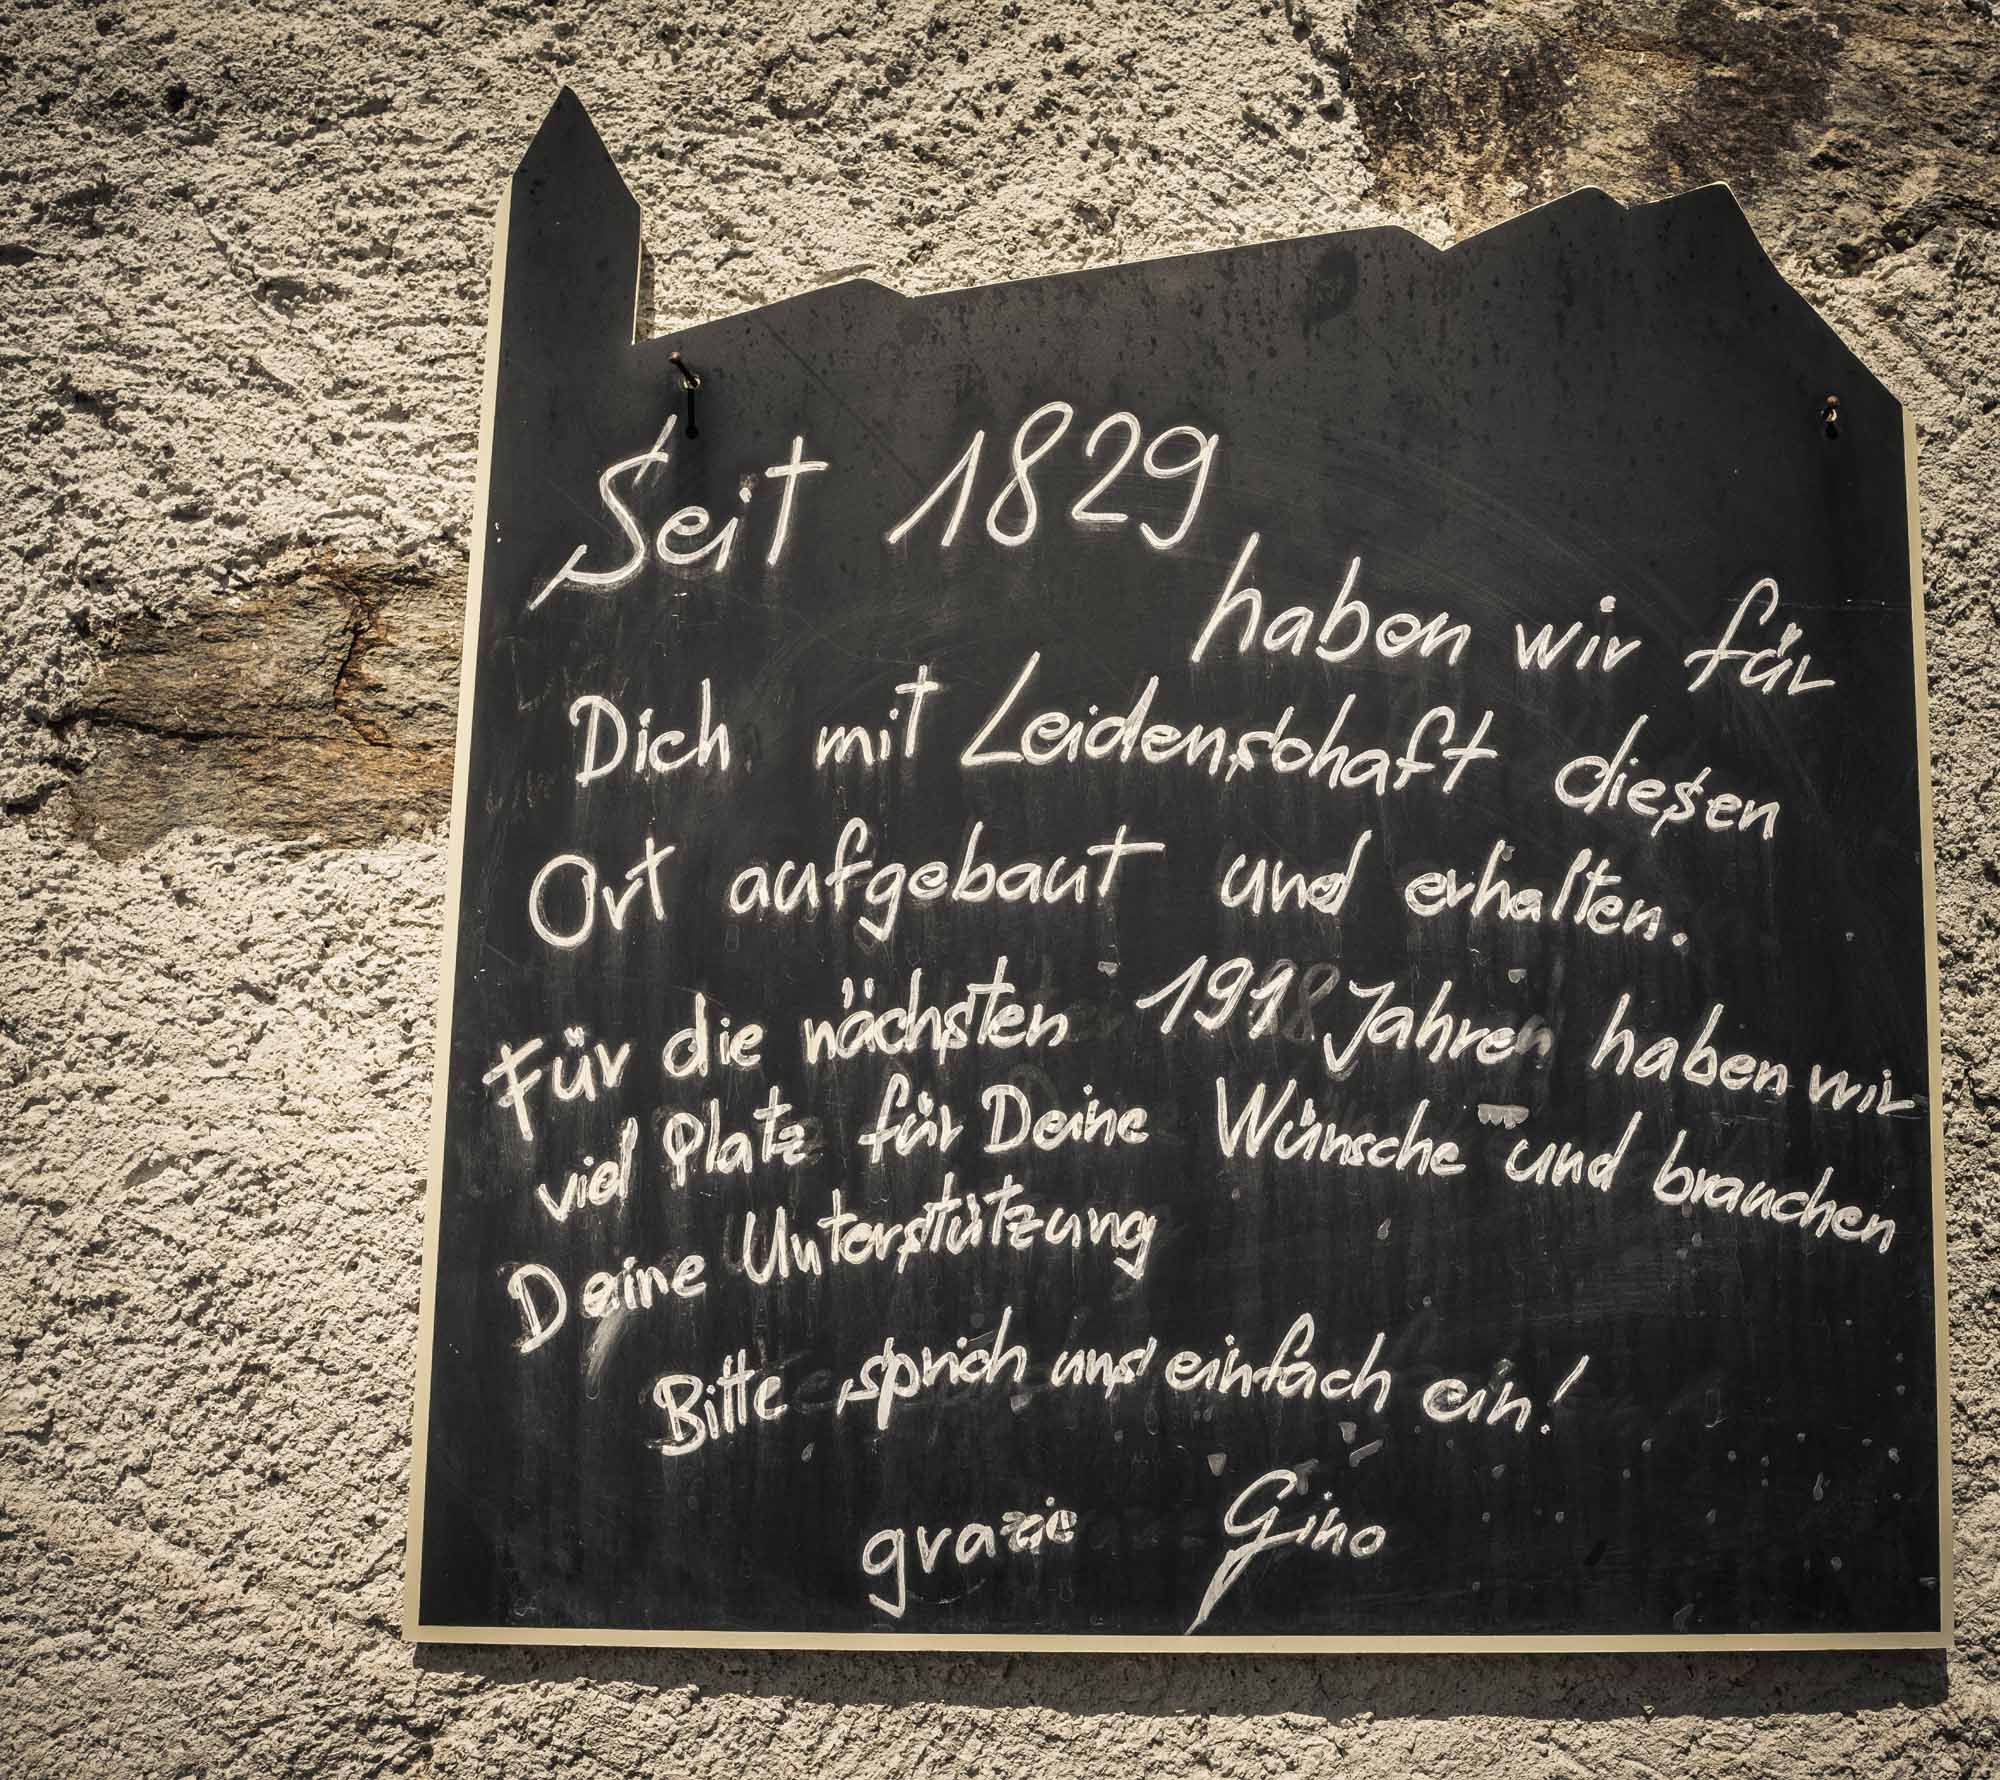 Seit 1829
haben wir für
Dich mit Leidenschaft diesen
Ort aufgebaut und erhalten.
Für die nächsten 191 Jahren haben wir
viel Platz für Deine Wünsche und brauchen
Deine Unterstützung
Bitte sprich uns einfach ein!
grazie Gino